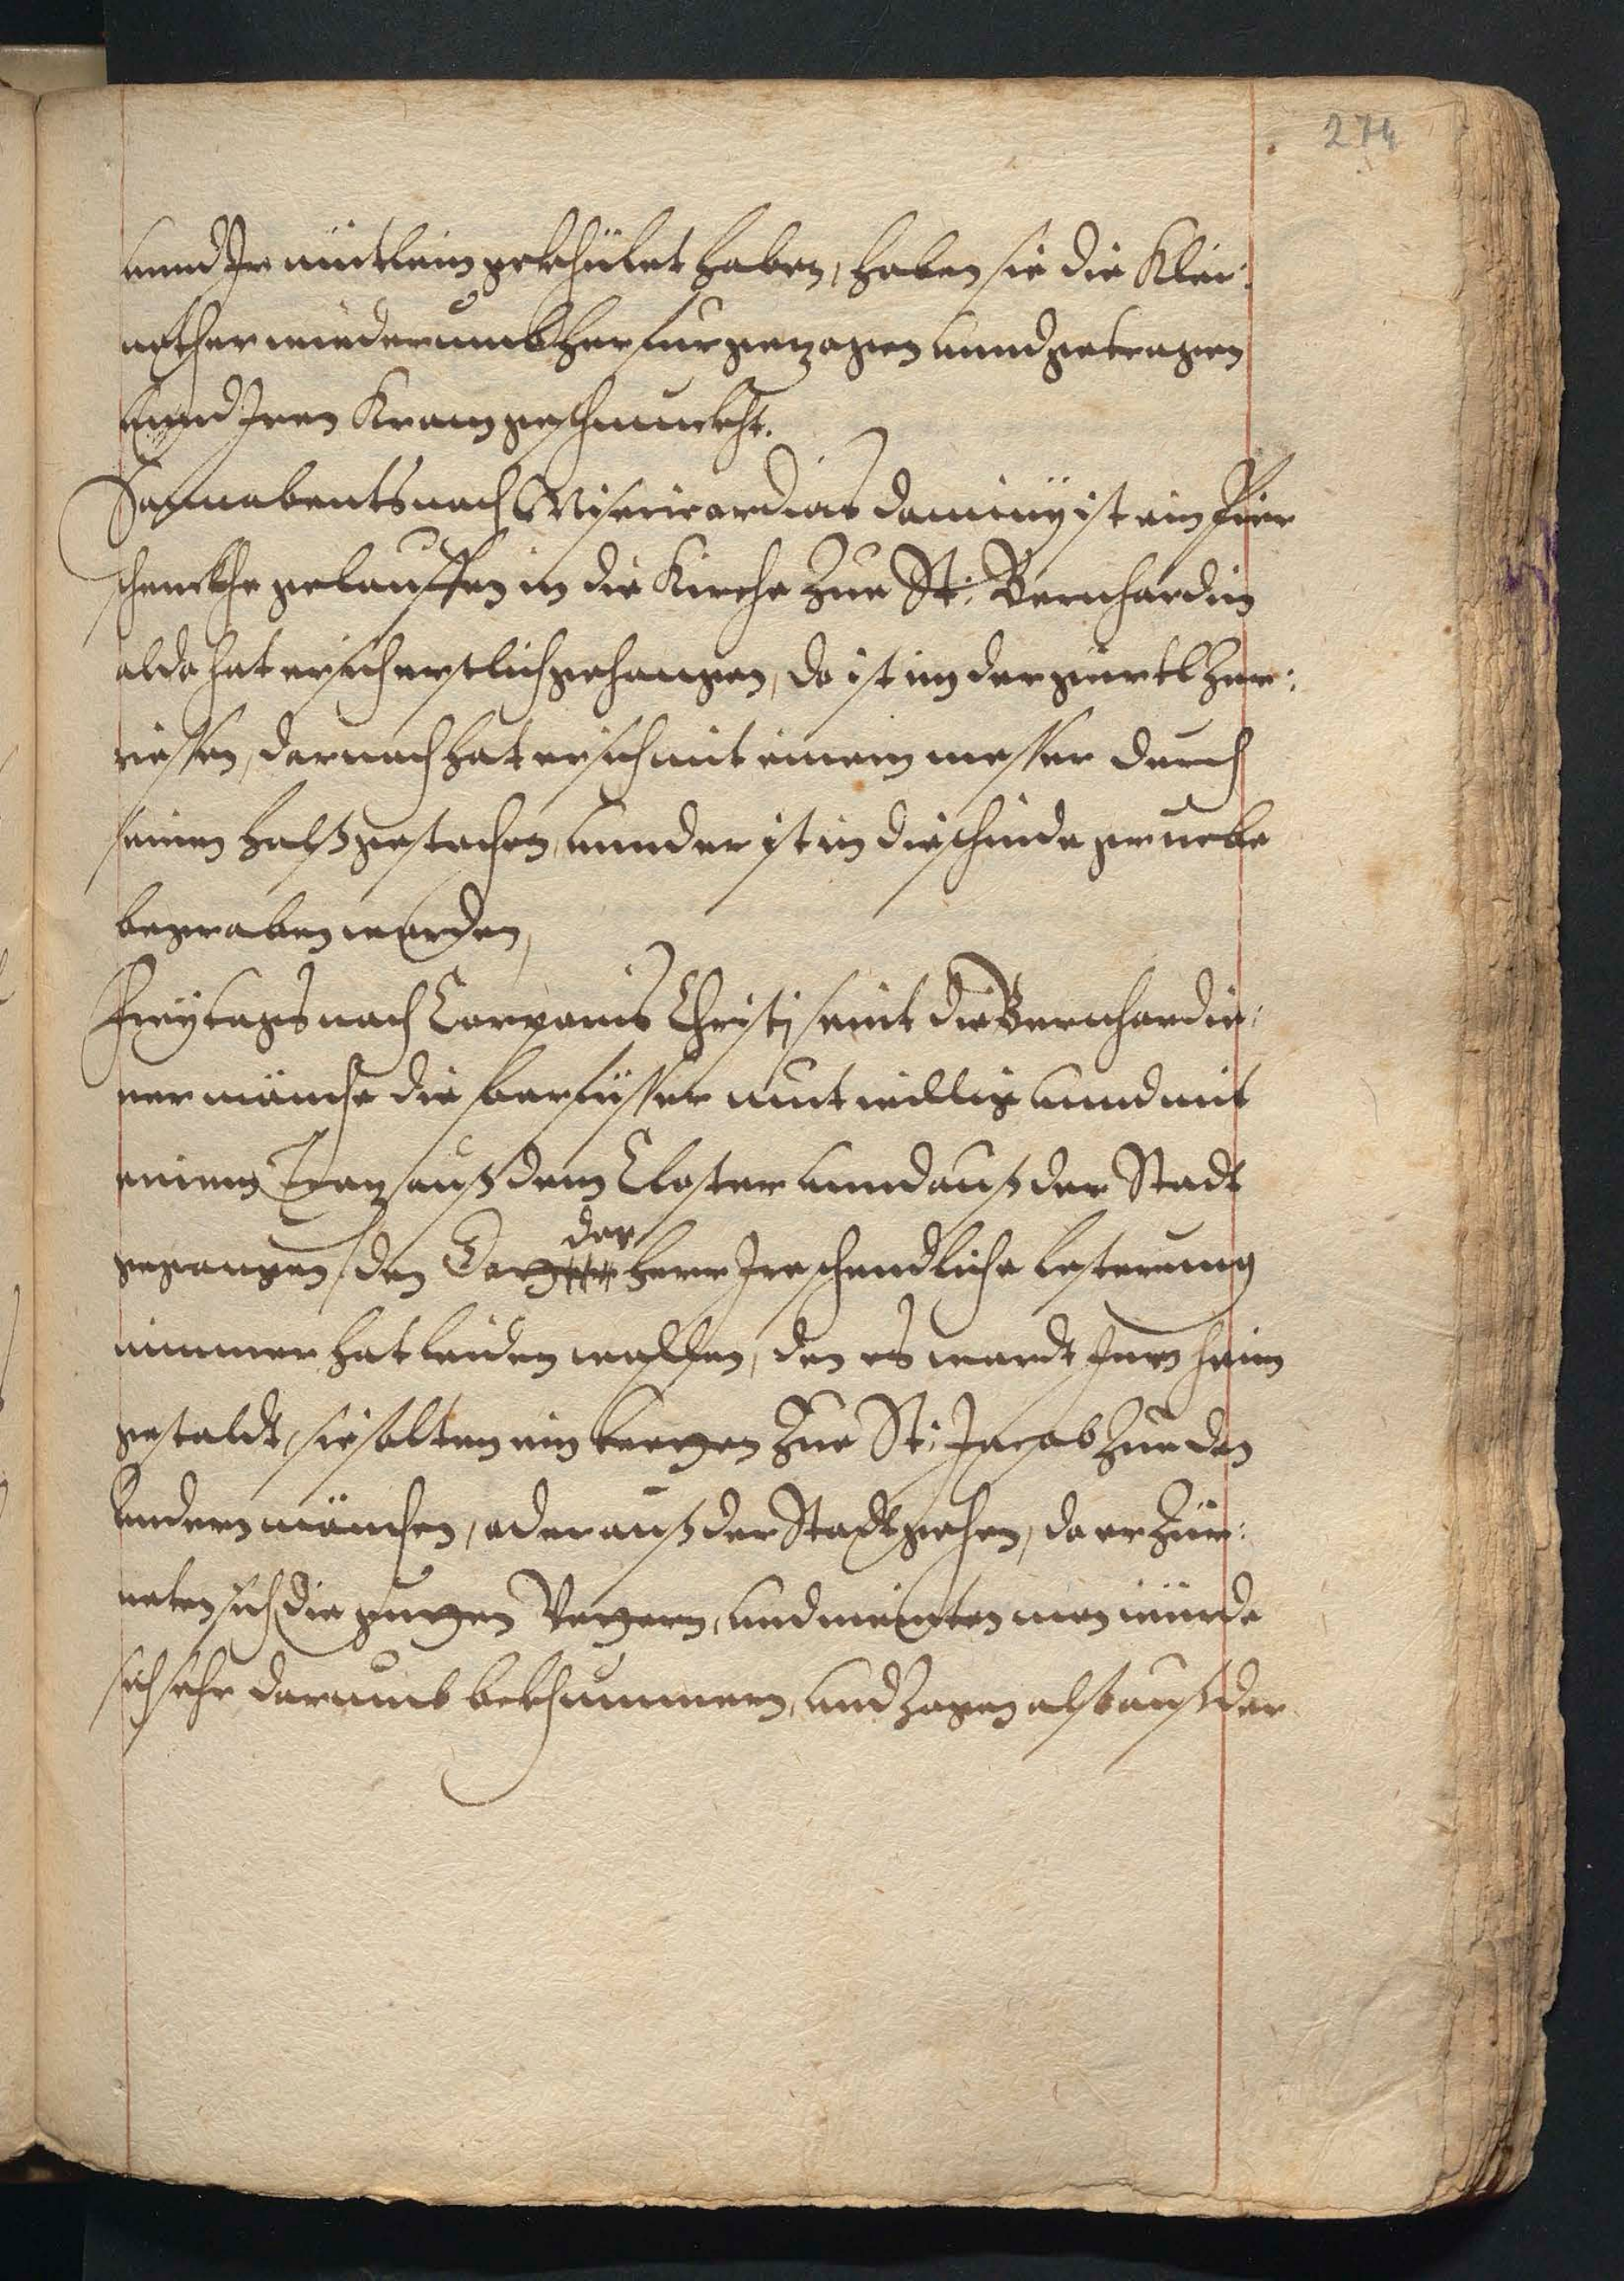 274
unnd Ir mütlein gekhület haben, haben sie die Klei:
nother wiederumb herfur gezogen unnd getragen
unnd Iren Kram geschmuckht.
Sonnabents nach Misericordias dominy ist ein bier
schenckhe gelauffen in die Kirche Zue St: Bernhardin
aldo hat er sich erstlich gehangen, do ist im der gürtl Zur:
riessen, darnach hat er sich mit einem messer durch
seinen halsz gestochen, unnd er ist in die schinde gruebe
begraben worden,
Freytags nach Corporis Christi seint die Bernhardin:
ner mönche die barfüsser mutwillig unnd mit
einem Troz ausz dem Closter unnd ausz der Stadt
gegangen, den der herr Ire schendliche lesterung
nimmer hat leiden wollen, den es wardt Inen heim
gestaldt, sie solten ein kerzen Zue St: Jacob Zue den
andern mönchen, oder ausz der Stadt ziehen, do erzür:
neten sich die und meinten man würde
sich sehr darumb bekhummern, und Zogen also ausz der